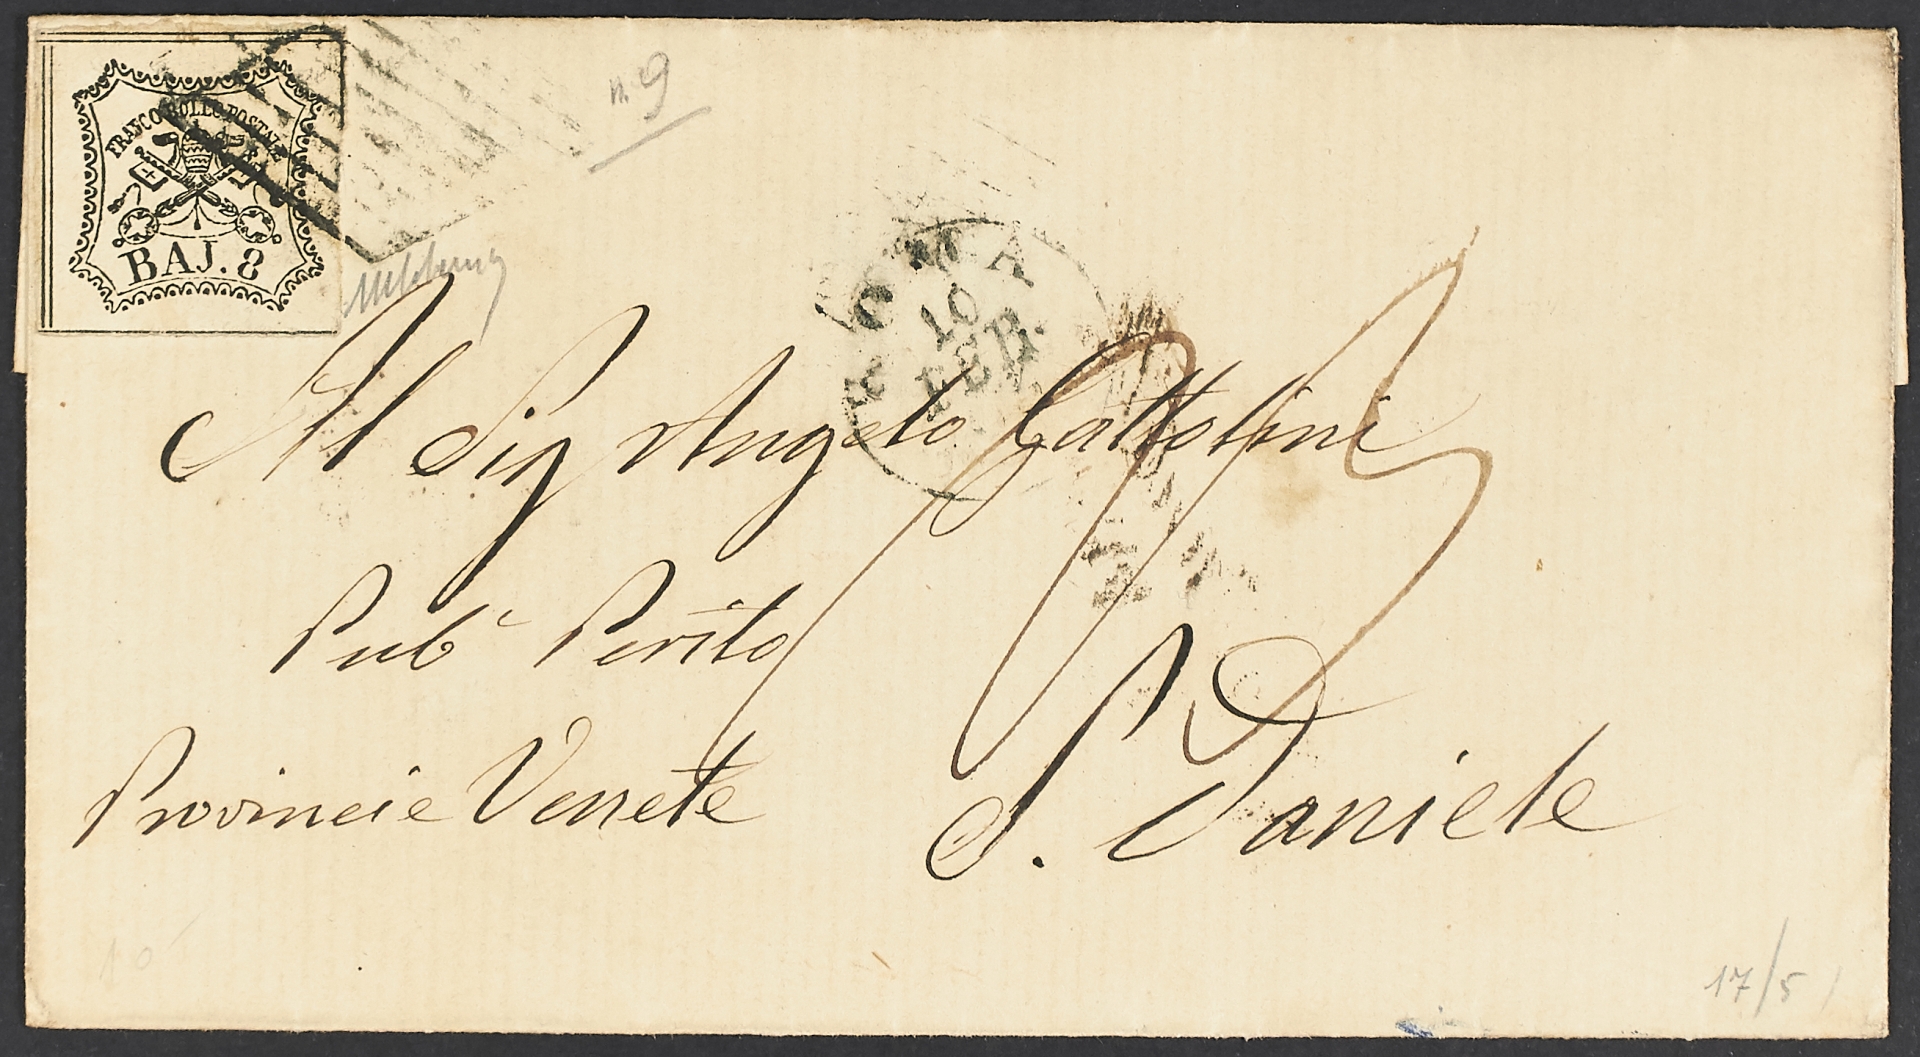 FRANCO BOLLO POSTALE
BAJ. 8
n. 9
ROMA
10
FEB.
Al Sig Angelo Gattolini
Pub° Perito
Provincie Venete
S. Daniele
10
17/5